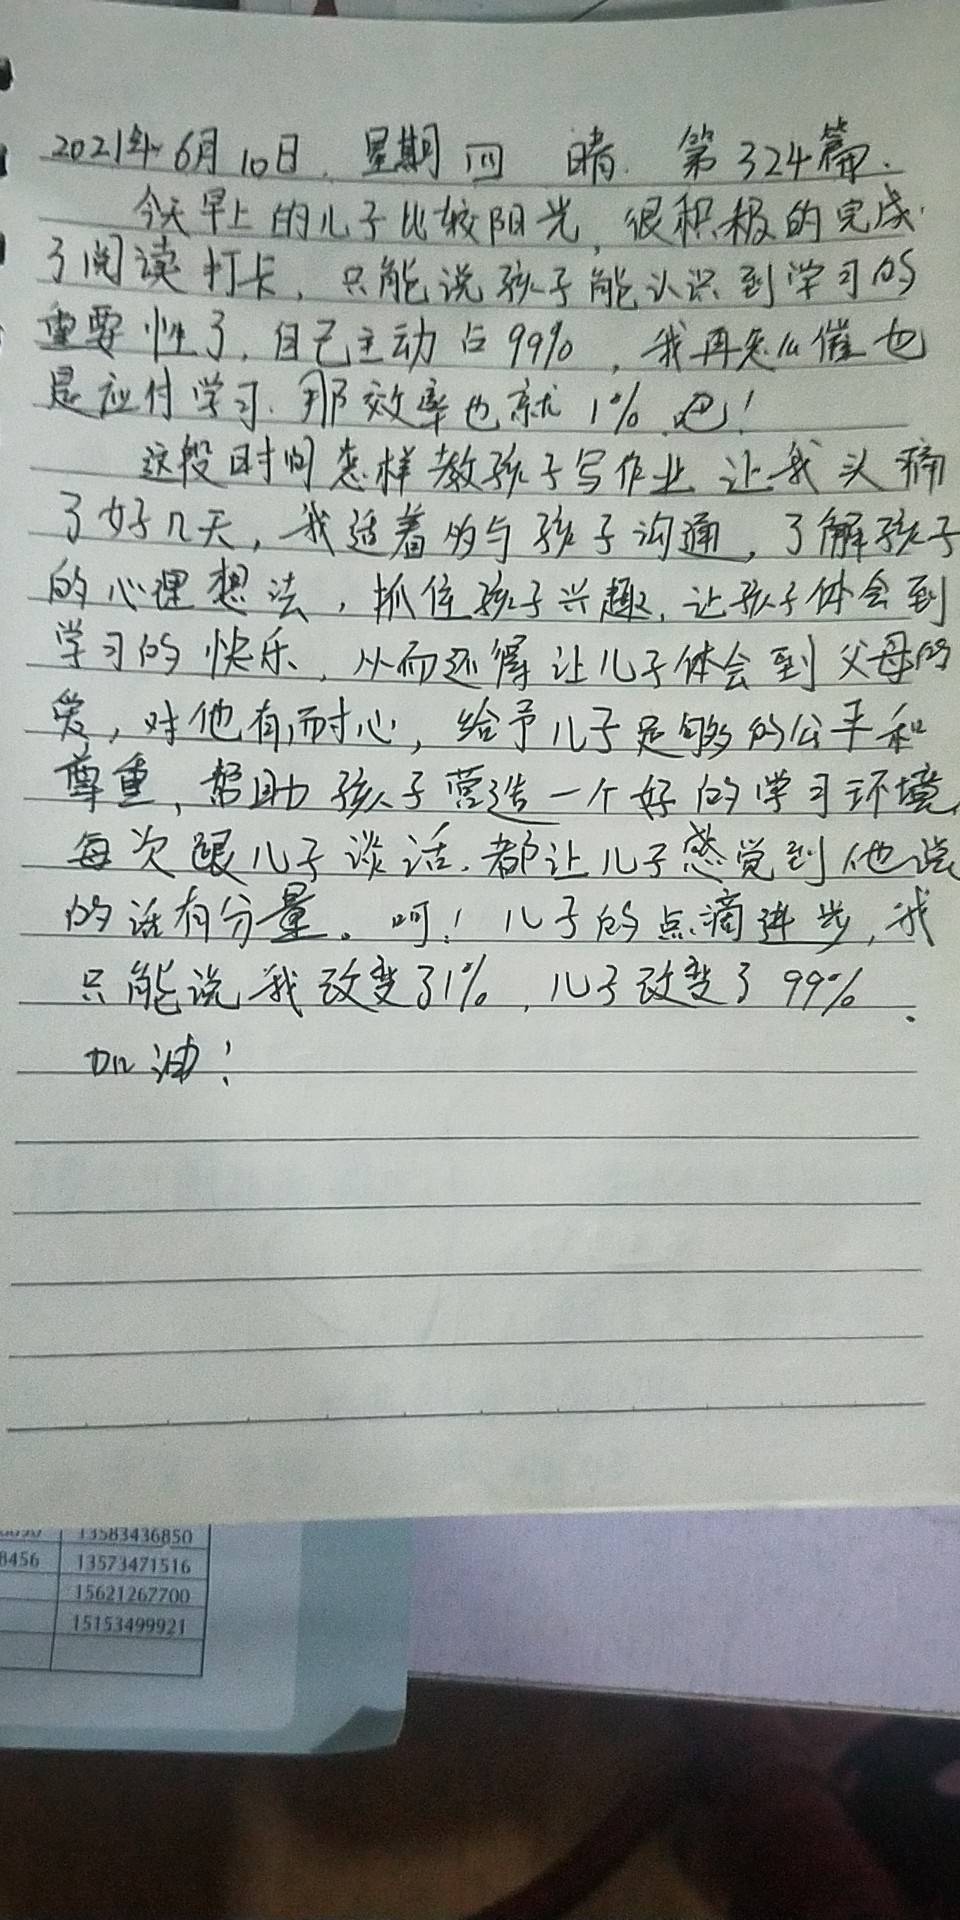 2021年6月10日. 星期四 晴. 第324篇.
今天早上的儿子比较阳光,很积极的完成
了阅读打卡,只能说孩子能认识到学习的
重要性了,自己主动占99%,我再怎么催也
是应付学习.那效率也就1%吧!
这段时间怎样教孩子写作业让我头痛
了好几天,我试着的与孩子沟通,了解孩子
的心理想法,抓住孩子兴趣,让孩子体会到
学习的快乐,从而还得让儿子体会到父母的
爱,对他有耐心,给予儿子足够的公平和
尊重,帮助孩子营造一个好的学习环境,
每次跟儿子谈话.都让儿子感觉到他说
的话有分量。呵!儿子的点滴进步,我
只能说我改变了1%,儿子改变了99%.
加油!
13583436850
8456 13573471516
15621267700
15153499921